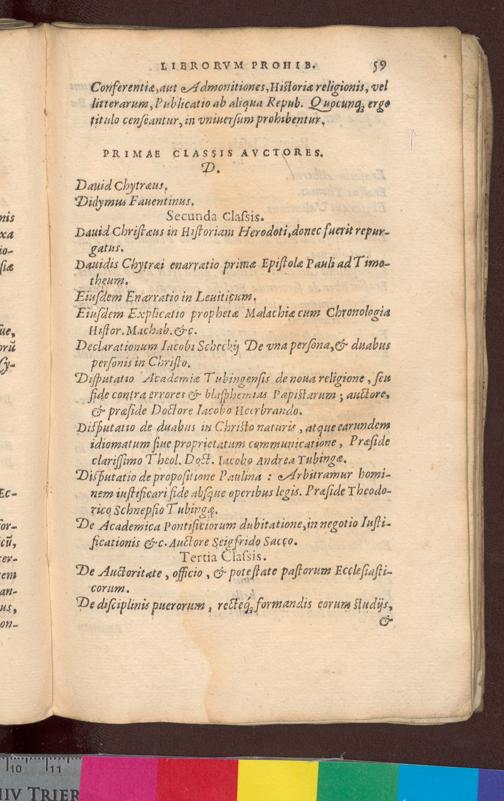 LIBRORVM PROHIB. 59
Conferentiæ, aut Admonitiones, Historiæ religionis, vel
litterarum, Publicatio ab aliqua Repub. Quocunq, ergo
titulo censeantur, in vniuersum prohibentur.
PRIMAE CLASSIS AVCTORES.
D.
Dauid Chytræus.
Didymus Fauentinus.
Secunda Classis.
Dauid Christæus in Historiam Herodoti, donec fuerit repur-
gatus.
Dauidis Chytræi enarratio primæ Epistolæ Pauli ad Timo-
theum.
Eiusdem Enarratio in Leuiticum.
Eiusdem Explicatio prophetæ Malachiæ cum Chronologia
Histor. Machab. &c.
Declarationum Iacobi Scheckij De vna persona, & duabus
personis in Christo.
Disputatio Academiæ Tubingensis de noua religione, seu
fide contra errores & blasphemias Papistarum; auctore,
& præside Doctore Iacobo Heerbrando.
Disputatio de duabus in Christo naturis, atque earundem
idiomatum siue proprietatum communicatione, Præside
clarissimo Theol. Doct. Iacobo Andrea Tubingæ.
Disputatio de propositione Paulina: Arbitramur homi-
nem iustificari fide absque operibus legis. Præside Theodo-
rico Schnepfio Tubingæ.
De Academica Pontificiorum dubitatione, in negotio Iusti-
ficationis &c. Auctore Seigfrido Sacco.
Tertia Classis.
De Auctoritate, officio, & potestate pastorum Ecclesiasti-
corum.
De disciplinis puerorum, recteq, formandis eorum studijs,
&
nis
xa
io-
siæ
ue,
orū
sy-
Ec-
for-
cū,
cer-
tem
an-
us,
on-
10 11
IV TRIER